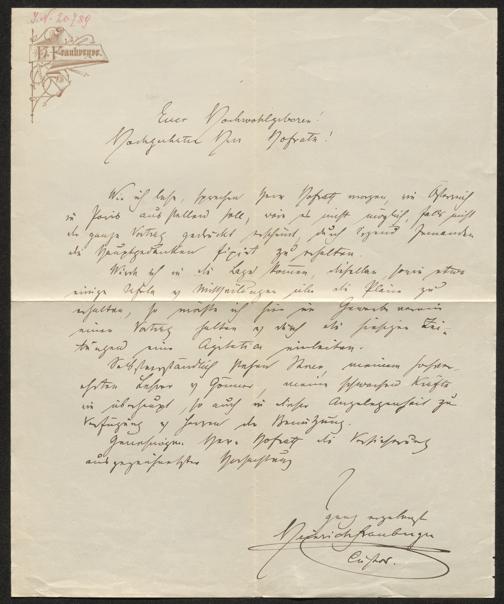 J.N. 20.789
H. Frauberger.
Euer Hochwohlgeboren!
Hochgeehrter Herr Hofrath!
Wie ich lese, sprechen Herr Hofrath morgen, wie Österreich
in Paris ausstellen soll, wäre es nicht möglich, falls nicht
der ganze Vortrag gedruckt erscheint, durch Irgend Jemanden
die Hauptgedanken fixirt zu erhalten.
Würde ich in die Lage kommen, dieselben sowie etwa
einige Mittheilungen über die Pläne zu
erhalten, so möchte ich hier im Gewerbeverein
einen Vortrag halten & durch die hiesigen Zei-
tungen eine Agitation einleiten.
Selbstverständlich stehen Ihnen, meinem hochver-
ehrten Lehrer & Gönner, meine schwachen Kräfte
wie überhaupt, so auch in dieser Angelegenheit zu
Verfügung &
Genehmigen Herr Hofrath die Versicherung
ausgezeichneter Hochachtung
ganz ergebenst
Heinrich Frauberger
Custos.